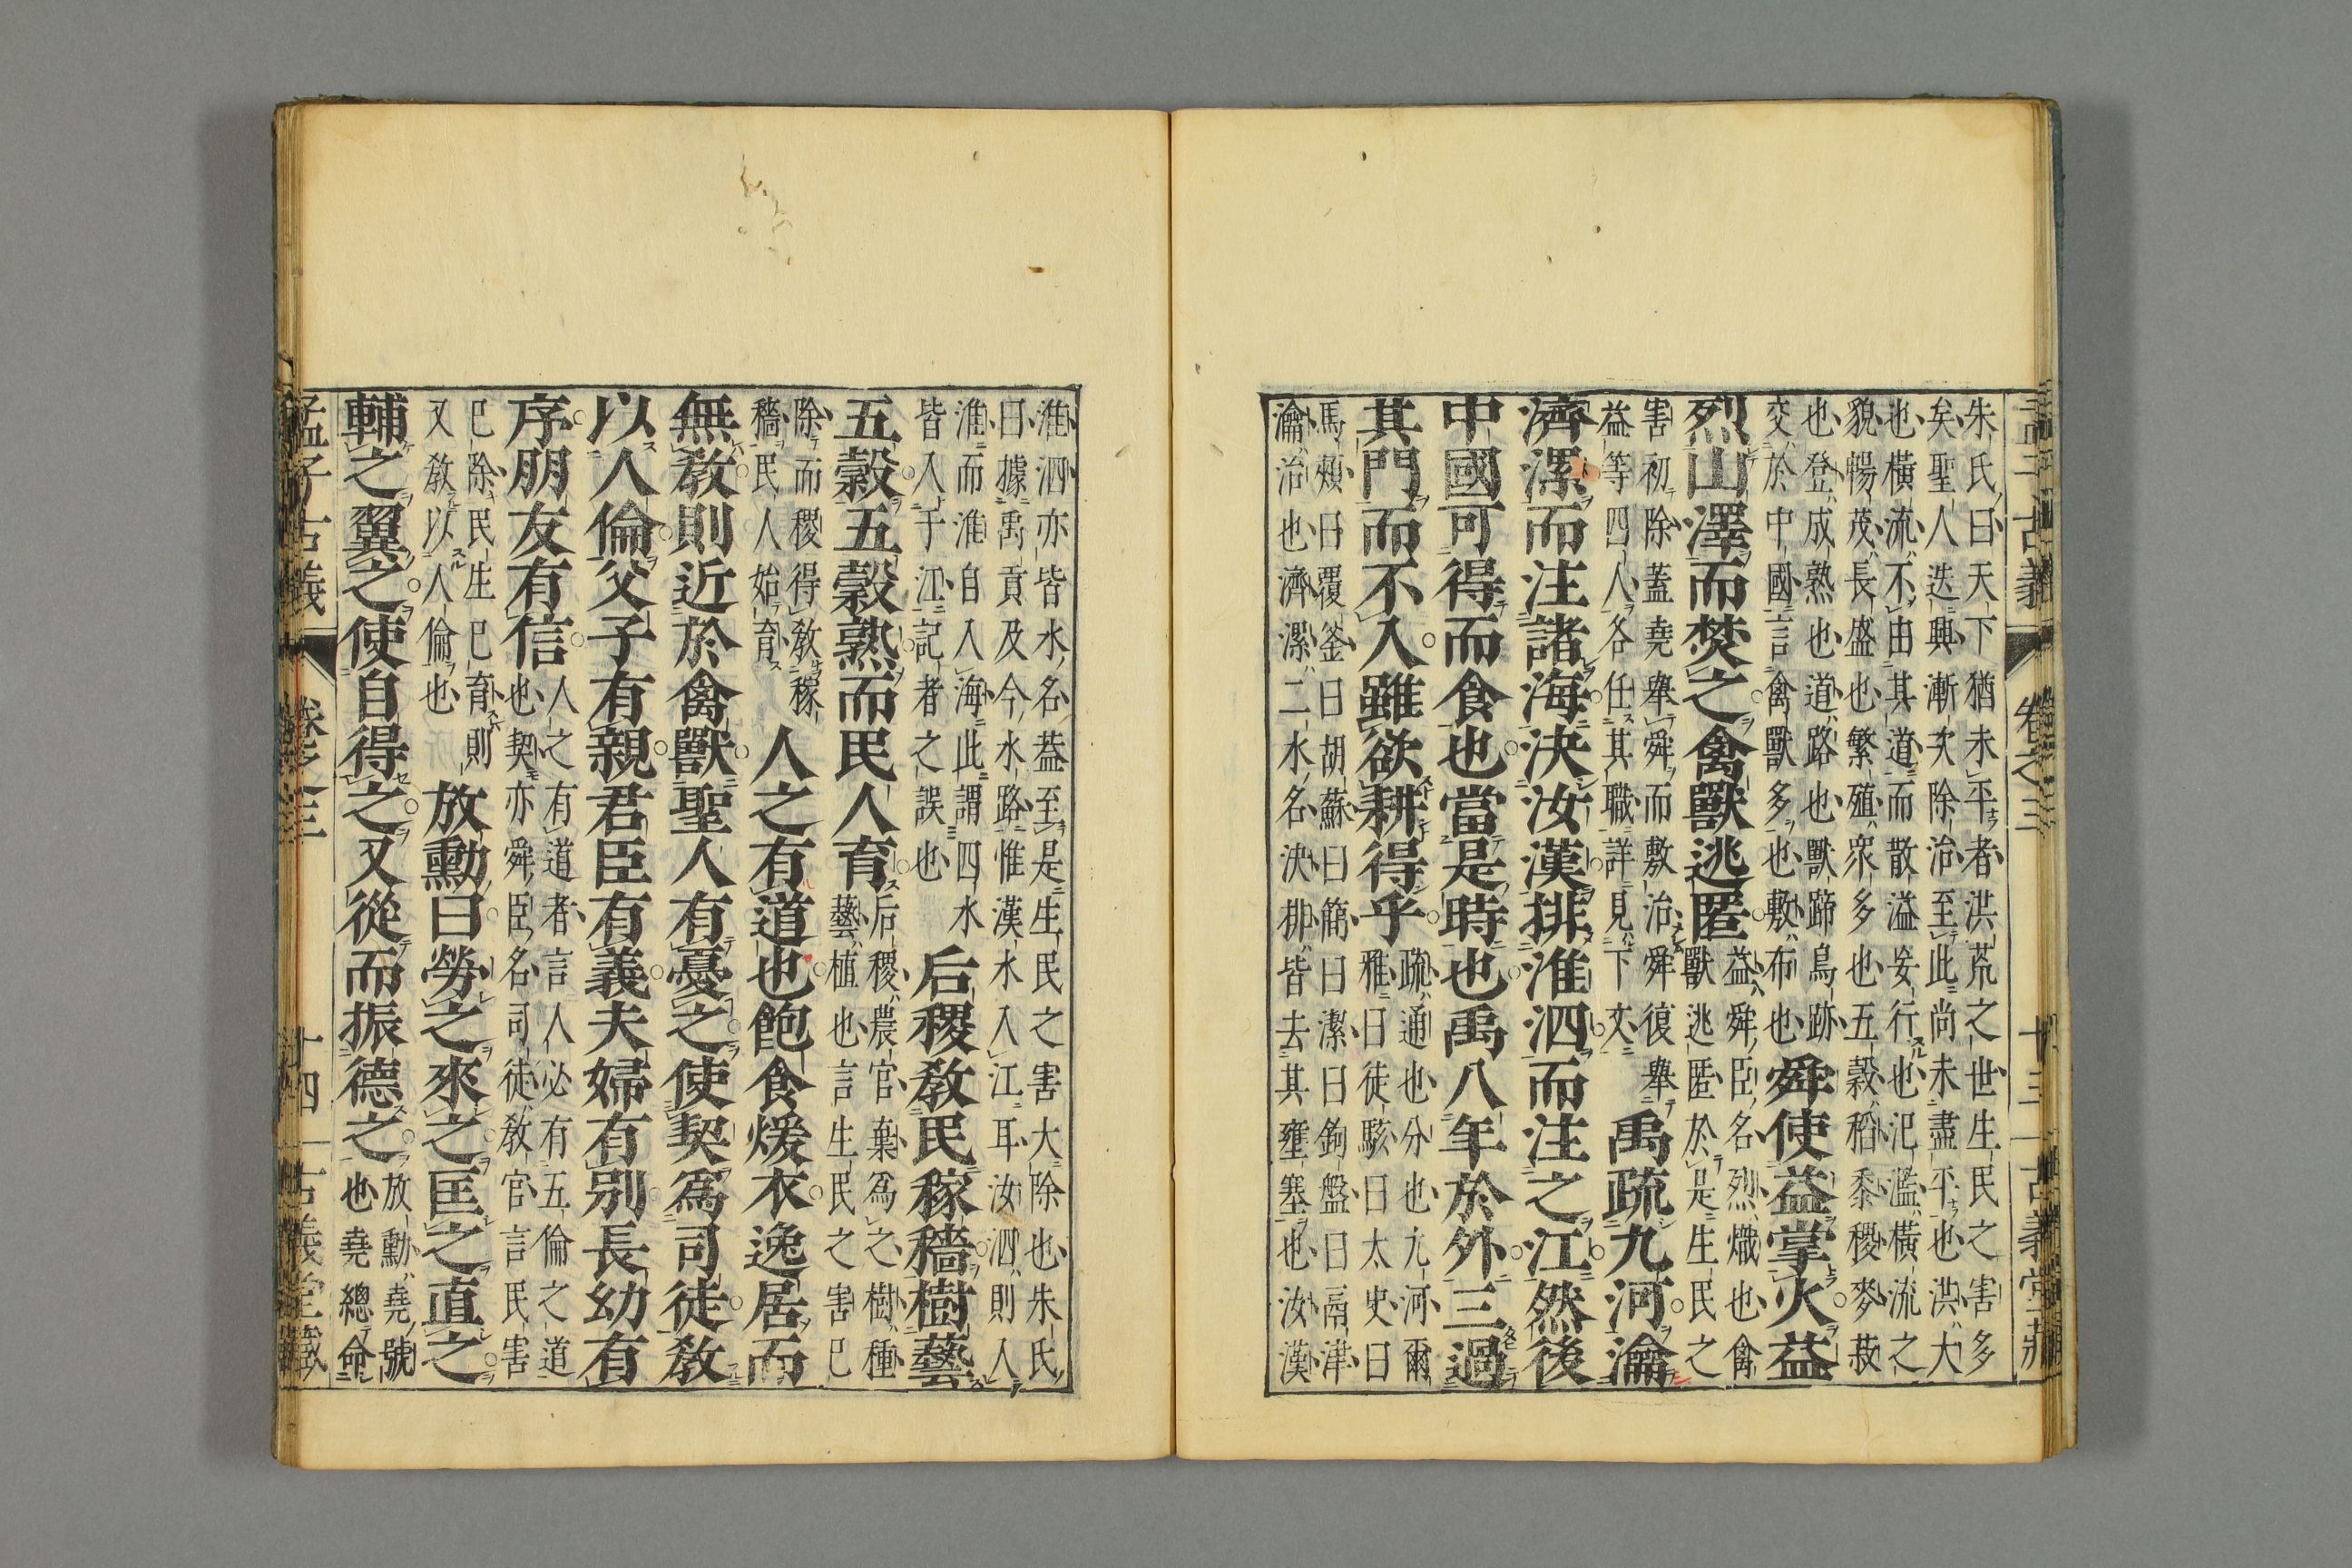 孟子古義 卷之三 十三 古義堂藏
朱氏曰天下猶未平者洪荒之世生民之害多
矣聖人迭興漸次除治至此尚未盡平也洪大
也橫流不由其道而散溢妄行也氾濫橫流之
貌暢茂長盛也繁殖衆多也五穀稻黍稷麥菽
也登成熟也道路也獸蹄鳥跡
交於中國言禽獸多也敷布也
舜使益掌火益
烈山澤而焚之禽獸逃匿
益舜臣名烈熾也禽
獸逃匿於是生民之
害初除蓋堯舉舜而敷治舜復舉
益等四人各任其職詳見下文
禹疏九河瀹
濟漯而注諸海決汝漢排淮泗而注之江然後
中國可得而食也當是時也禹八年於外三過
其門而不入雖欲耕得乎
疏通也分也九河爾
雅曰徒駭曰太史曰
馬頰曰覆釜曰胡蘇曰簡曰潔曰鉤盤曰鬲津
瀹治也濟漯二水名決排皆去其壅塞也汝漢
淮泗亦皆水名蓋至是生民之害大除也朱氏
曰據禹貢及今水路惟漢水入江耳汝泗則入
淮而淮自入海此謂四水
皆入于江記者之誤也
后稷教民稼穡樹藝
五穀五穀熟而民人育
后稷農官棄爲之樹種
藝植也言生民之害已
除而稷得教稼
穡民人始育
人之有道也飽食煖衣逸居而
無教則近於禽獸聖人有憂之使契爲司徒教
以人倫父子有親君臣有義夫婦有別長幼有
序朋友有信
人之有道者言人必有五倫之道
也契亦舜臣名司徒教官言民害
已除民生已育則
又教以人倫也
放勳曰勞之來之匡之直之
輔之翼之使自得之又從而振德之
放勳堯號
也堯總命
孟子古義 卷之三 十四 古義堂藏